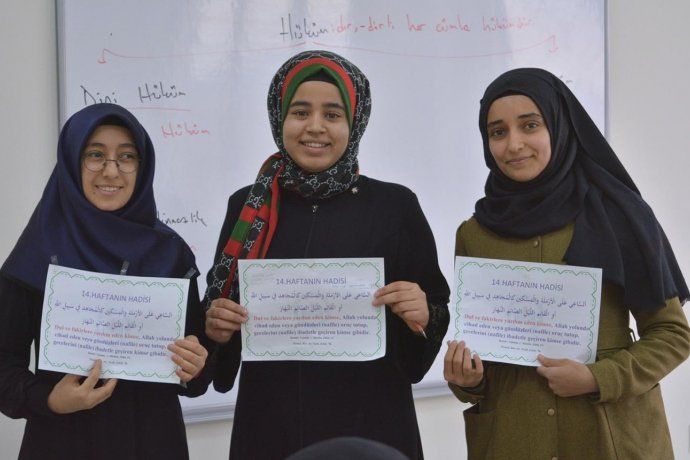 Hüküm: dır, -dirti her cümle hükümdür.
Dini Hüküm
Hüküm
14.HAFTANIN HADİSİ
السَّاعِي عَلَى الأَرْمَلَةِ وَالْمِسْكِينِ كَالْمُجَاهِدِ فِي سَبِيلِ اللهِ
أَوِ الْقَائِمِ اللَّيْلَ الصَّائِمِ النَّهَارَ
Dul ve fakirlere yardım eden kimse, Allah yolunda
cihad eden veya gündüzleri (nafile) oruç tutup,
gecelerini (nafile) ibadetle geçiren kimse gibidir.
14.HAFTANIN HADİSİ
السَّاعِي عَلَى الأَرْمَلَةِ وَالْمِسْكِينِ كَالْمُجَاهِدِ فِي سَبِيلِ اللهِ
أَوِ الْقَائِمِ اللَّيْلَ الصَّائِمِ النَّهَارَ
Dul ve fakirlere yardım eden kimse, Allah yolunda
cihad eden veya gündüzleri (nafile) oruç tutup,
gecelerini (nafile) ibadetle geçiren kimse gibidir.
14.HAFTANIN HADİSİ
السَّاعِي عَلَى الأَرْمَلَةِ وَالْمِسْكِينِ كَالْمُجَاهِدِ فِي سَبِيلِ اللهِ
أَوِ الْقَائِمِ اللَّيْلَ الصَّائِمِ النَّهَارَ
Dul ve fakirlere yardım eden kimse, Allah yolunda
cihad eden veya gündüzleri (nafile) oruç tutup,
gecelerini (nafile) ibadetle geçiren kimse gibidir.